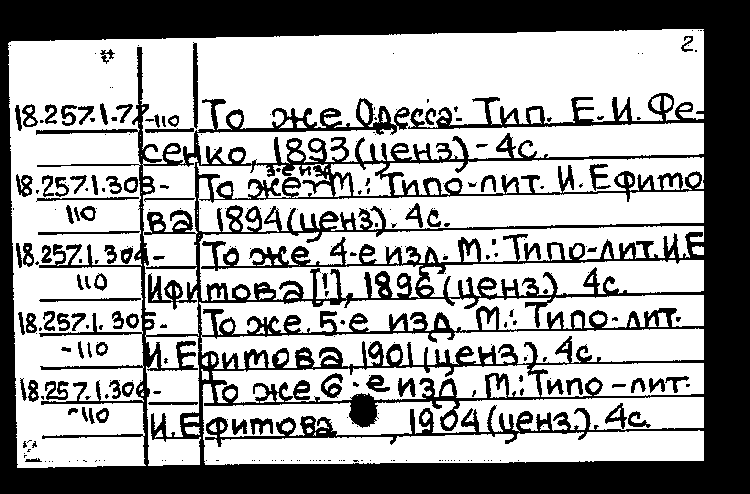 2.
18.257.1.77-110 То же. Одесса: Тип. Е. И. Фе-
сенко, 1893 (ценз.) - 4с.
3-е изд.
18.257.1.303- То же. М.: Типо-лит. И. Ефимо
110 ва, 1894 (ценз.). 4с.
18.257.1.304- То же. 4-е изд. М.: Типо-лит. И.Е
110 Ифитова [!], 1896 (ценз.). 4с.
18.257.1.305- То же. 5-е изд. М.: Типо-лит.
-110 И. Ефитова, 1901 (ценз.). 4с.
18.257.1.306- То же. 6-е изд. М.: Типо-лит.
-110 И. Ефитова, 1904 (ценз.). 4с.
2